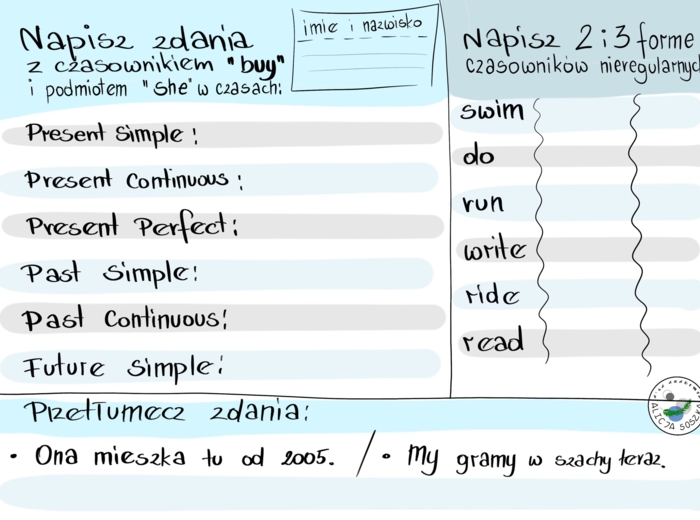 Napisz zdania
z czasownikiem "buy"
i podmiotem "she" w czasach:
imię i nazwisko
Present Simple:
Present Continuous:
Present Perfect:
Past Simple:
Past Continuous:
Future Simple:
Napisz 2 i 3 formę
czasowników nieregularnyc
swim
do
run
write
ride
read
Przetłumacz zdania:
• Ona mieszka tu od 2005. / • My gramy w szachy teraz.
ALICJA SOSZK